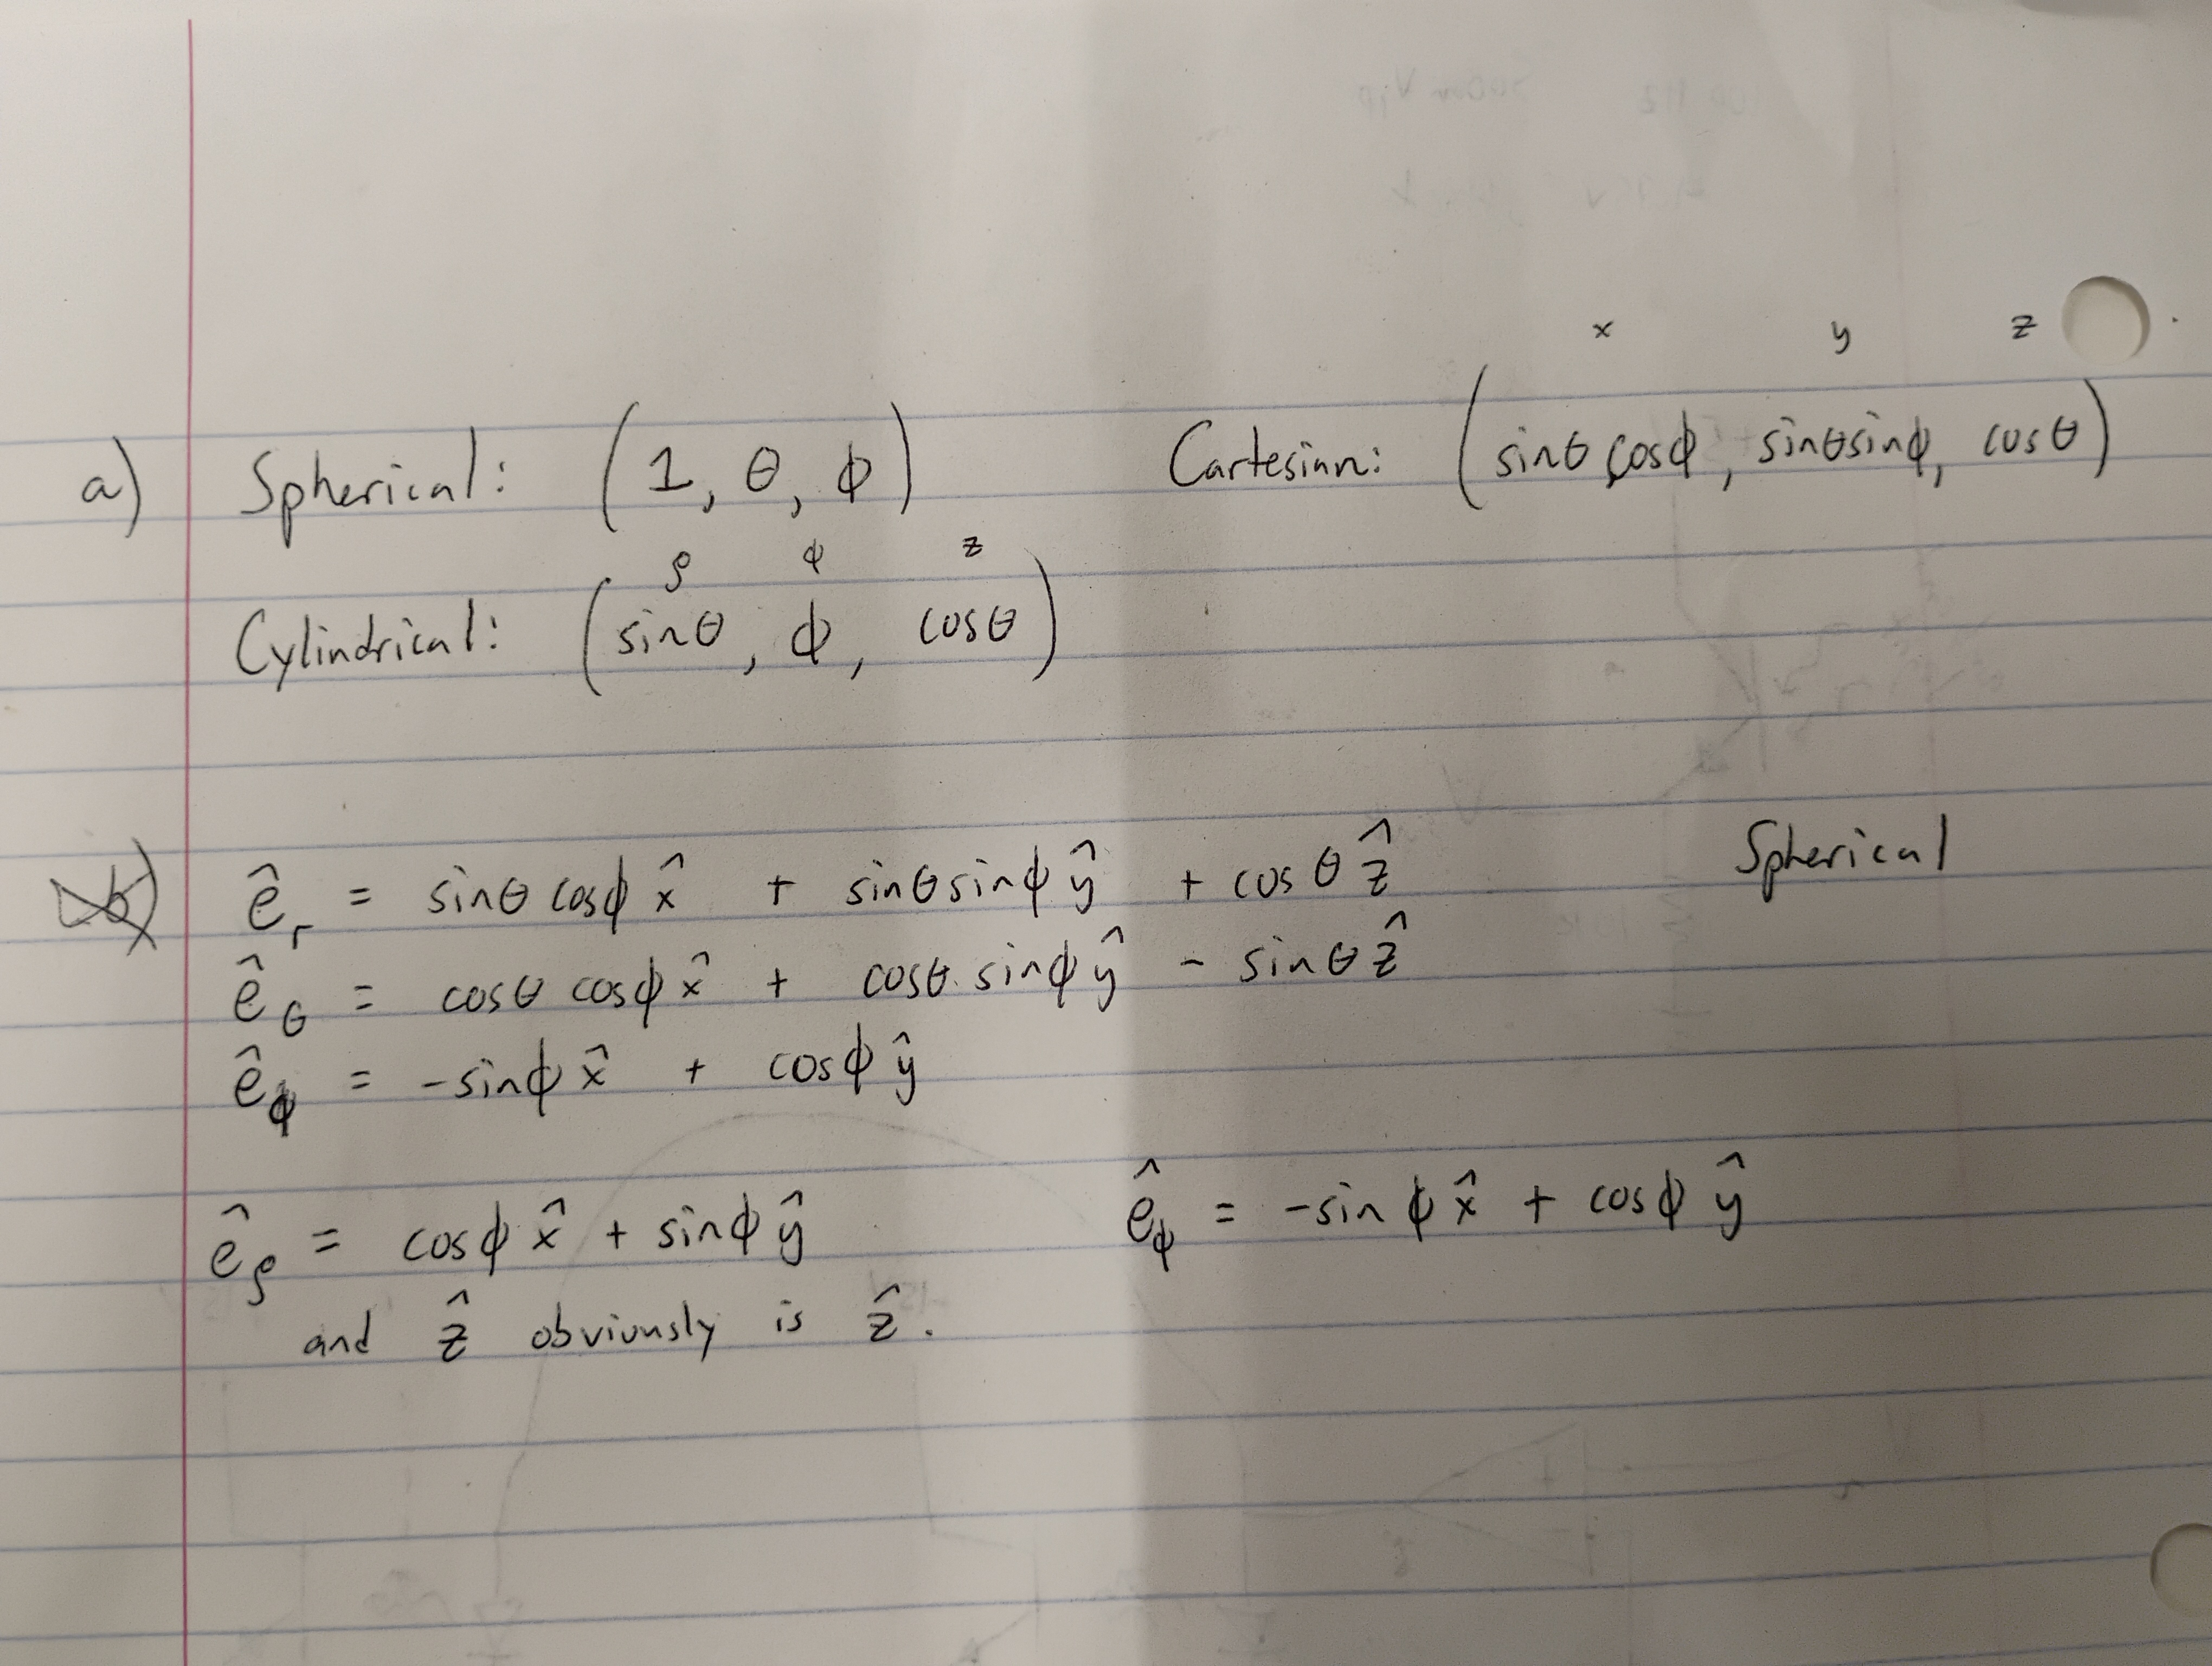 x y z
a) Spherical: (1, θ, ϕ) Cartesian: (sinθ cosϕ, sinθsinϕ, cosθ)
ρ ϕ z
Cylindrical: (sinθ, ϕ, cosθ)
b) ê_r = sinθ cosϕ x̂ + sinθ sinϕ ŷ + cos θ ẑ Spherical
ê_θ = cosθ cosϕ x̂ + cosθ sinϕ ŷ - sinθ ẑ
ê_ϕ = -sinϕ x̂ + cosϕ ŷ
ê_ρ = cosϕ x̂ + sinϕ ŷ ê_ϕ = -sin ϕ x̂ + cosϕ ŷ
and ẑ obviously is ẑ.